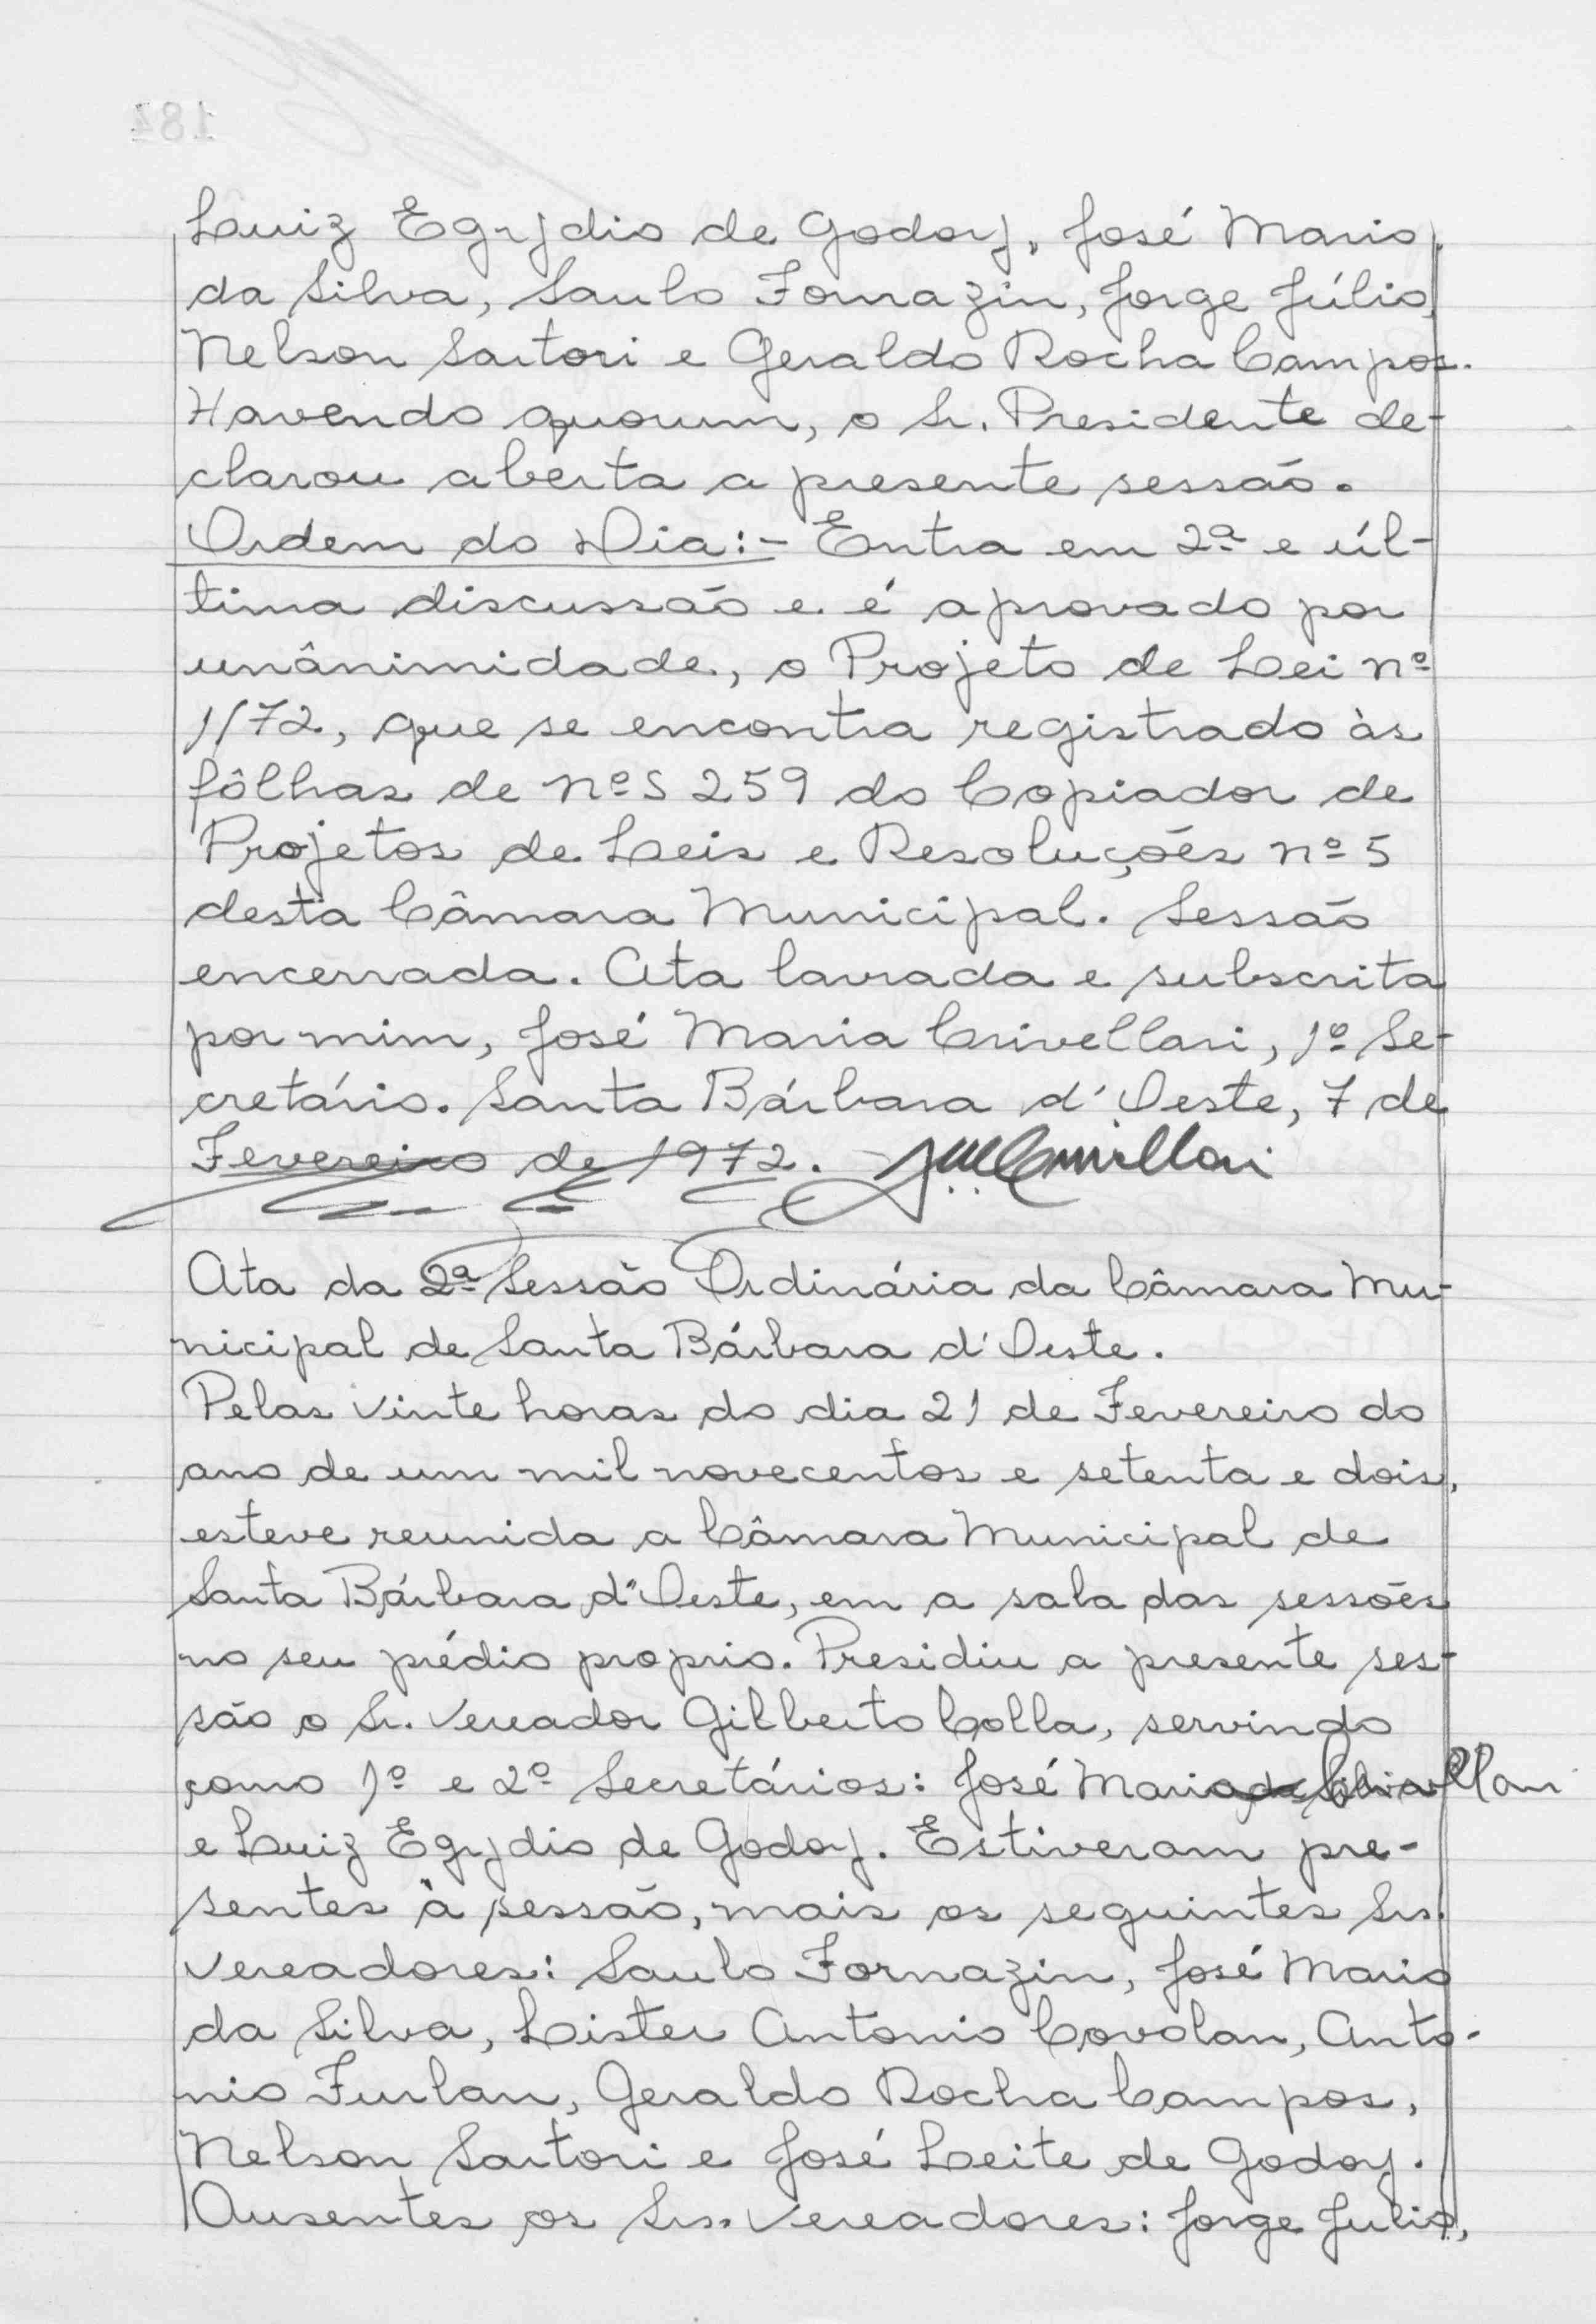 Luiz Egydio de Godoy, José Mario
da Silva, Saulo Fornazin, Jorge Júlio,
Nelson Sartori e Geraldo Rocha Campos.
Havendo quorum, o Sr. Presidente de-
clarou aberta a presente sessão.
Ordem do Dia:- Entra em 2ª e úl-
tima discussão e é aprovado por
unânimidade, o Projeto de Lei nº
1/72, que se encontra registrado às
fôlhas de nºs 259 do Copiador de
Projetos de Leis e Resoluções nº 5
desta Câmara Municipal. Sessão
encerrada. Ata lavrada e subscrita
por mim, José Maria Crivellari, 1º Se-
cretário. Santa Bárbara d'Oeste, 7 de
Fevereiro de 1972. JMCrivellari
Ata da 2ª Sessão Ordinária da Câmara Mu-
nicipal de Santa Bárbara d'Oeste.
Pelas vinte horas do dia 21 de Fevereiro do
ano de um mil novecentos e setenta e dois,
esteve reunida a Câmara Municipal de
Santa Bárbara d'Oeste, em a sala das sessões
no seu prédio proprio. Presidiu a presente ses-
são o Sr. Vereador Gilberto Colla, servindo
como 1º e 2º Secretários: José Maria
e Luiz Egydio de Godoy. Estiveram pre-
sentes à sessão, mais os seguintes Srs.
Vereadores: Saulo Fornazin, José Mario
da Silva, Lister Antonio Covolan, Anto-
nio Furlan, Geraldo Rocha Campos,
Nelson Sartori e José Leite de Godoy.
Ausentes os Srs. Vereadores: Jorge Julio,